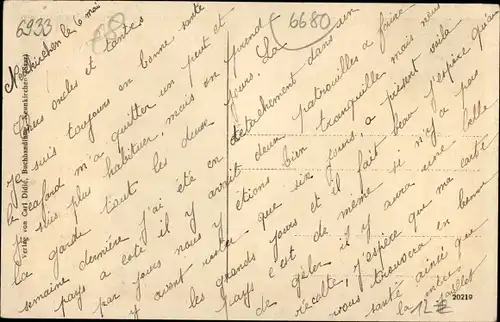 6933
88
6680
Neunkirchen le 6 mai
Chers oncles et tantes
Je suis toujours en bonne santé
le cafard m'a quitter un peut et
Je suis plus habituer, mais on prend
la garde tout les deux jours. La
semaine dernière j'ai été en détachement dans un
pays a coté il y avait deux patrouilles a faire
par jours nous étions bien tranquille mais nous
y avont rester que six jours, a présent voila
les grands jours et il fait beau j'espère qu'au
pays c'est de même si n'y a pas
de geler il y aura une belle
récolte, j'espère que ma carte
vous trouvera en bonne
santé ainsi que
la mère
Paillet
Verlag von Carl Didié, Buchhandlung, Neunkirchen (Saar)
12
20219